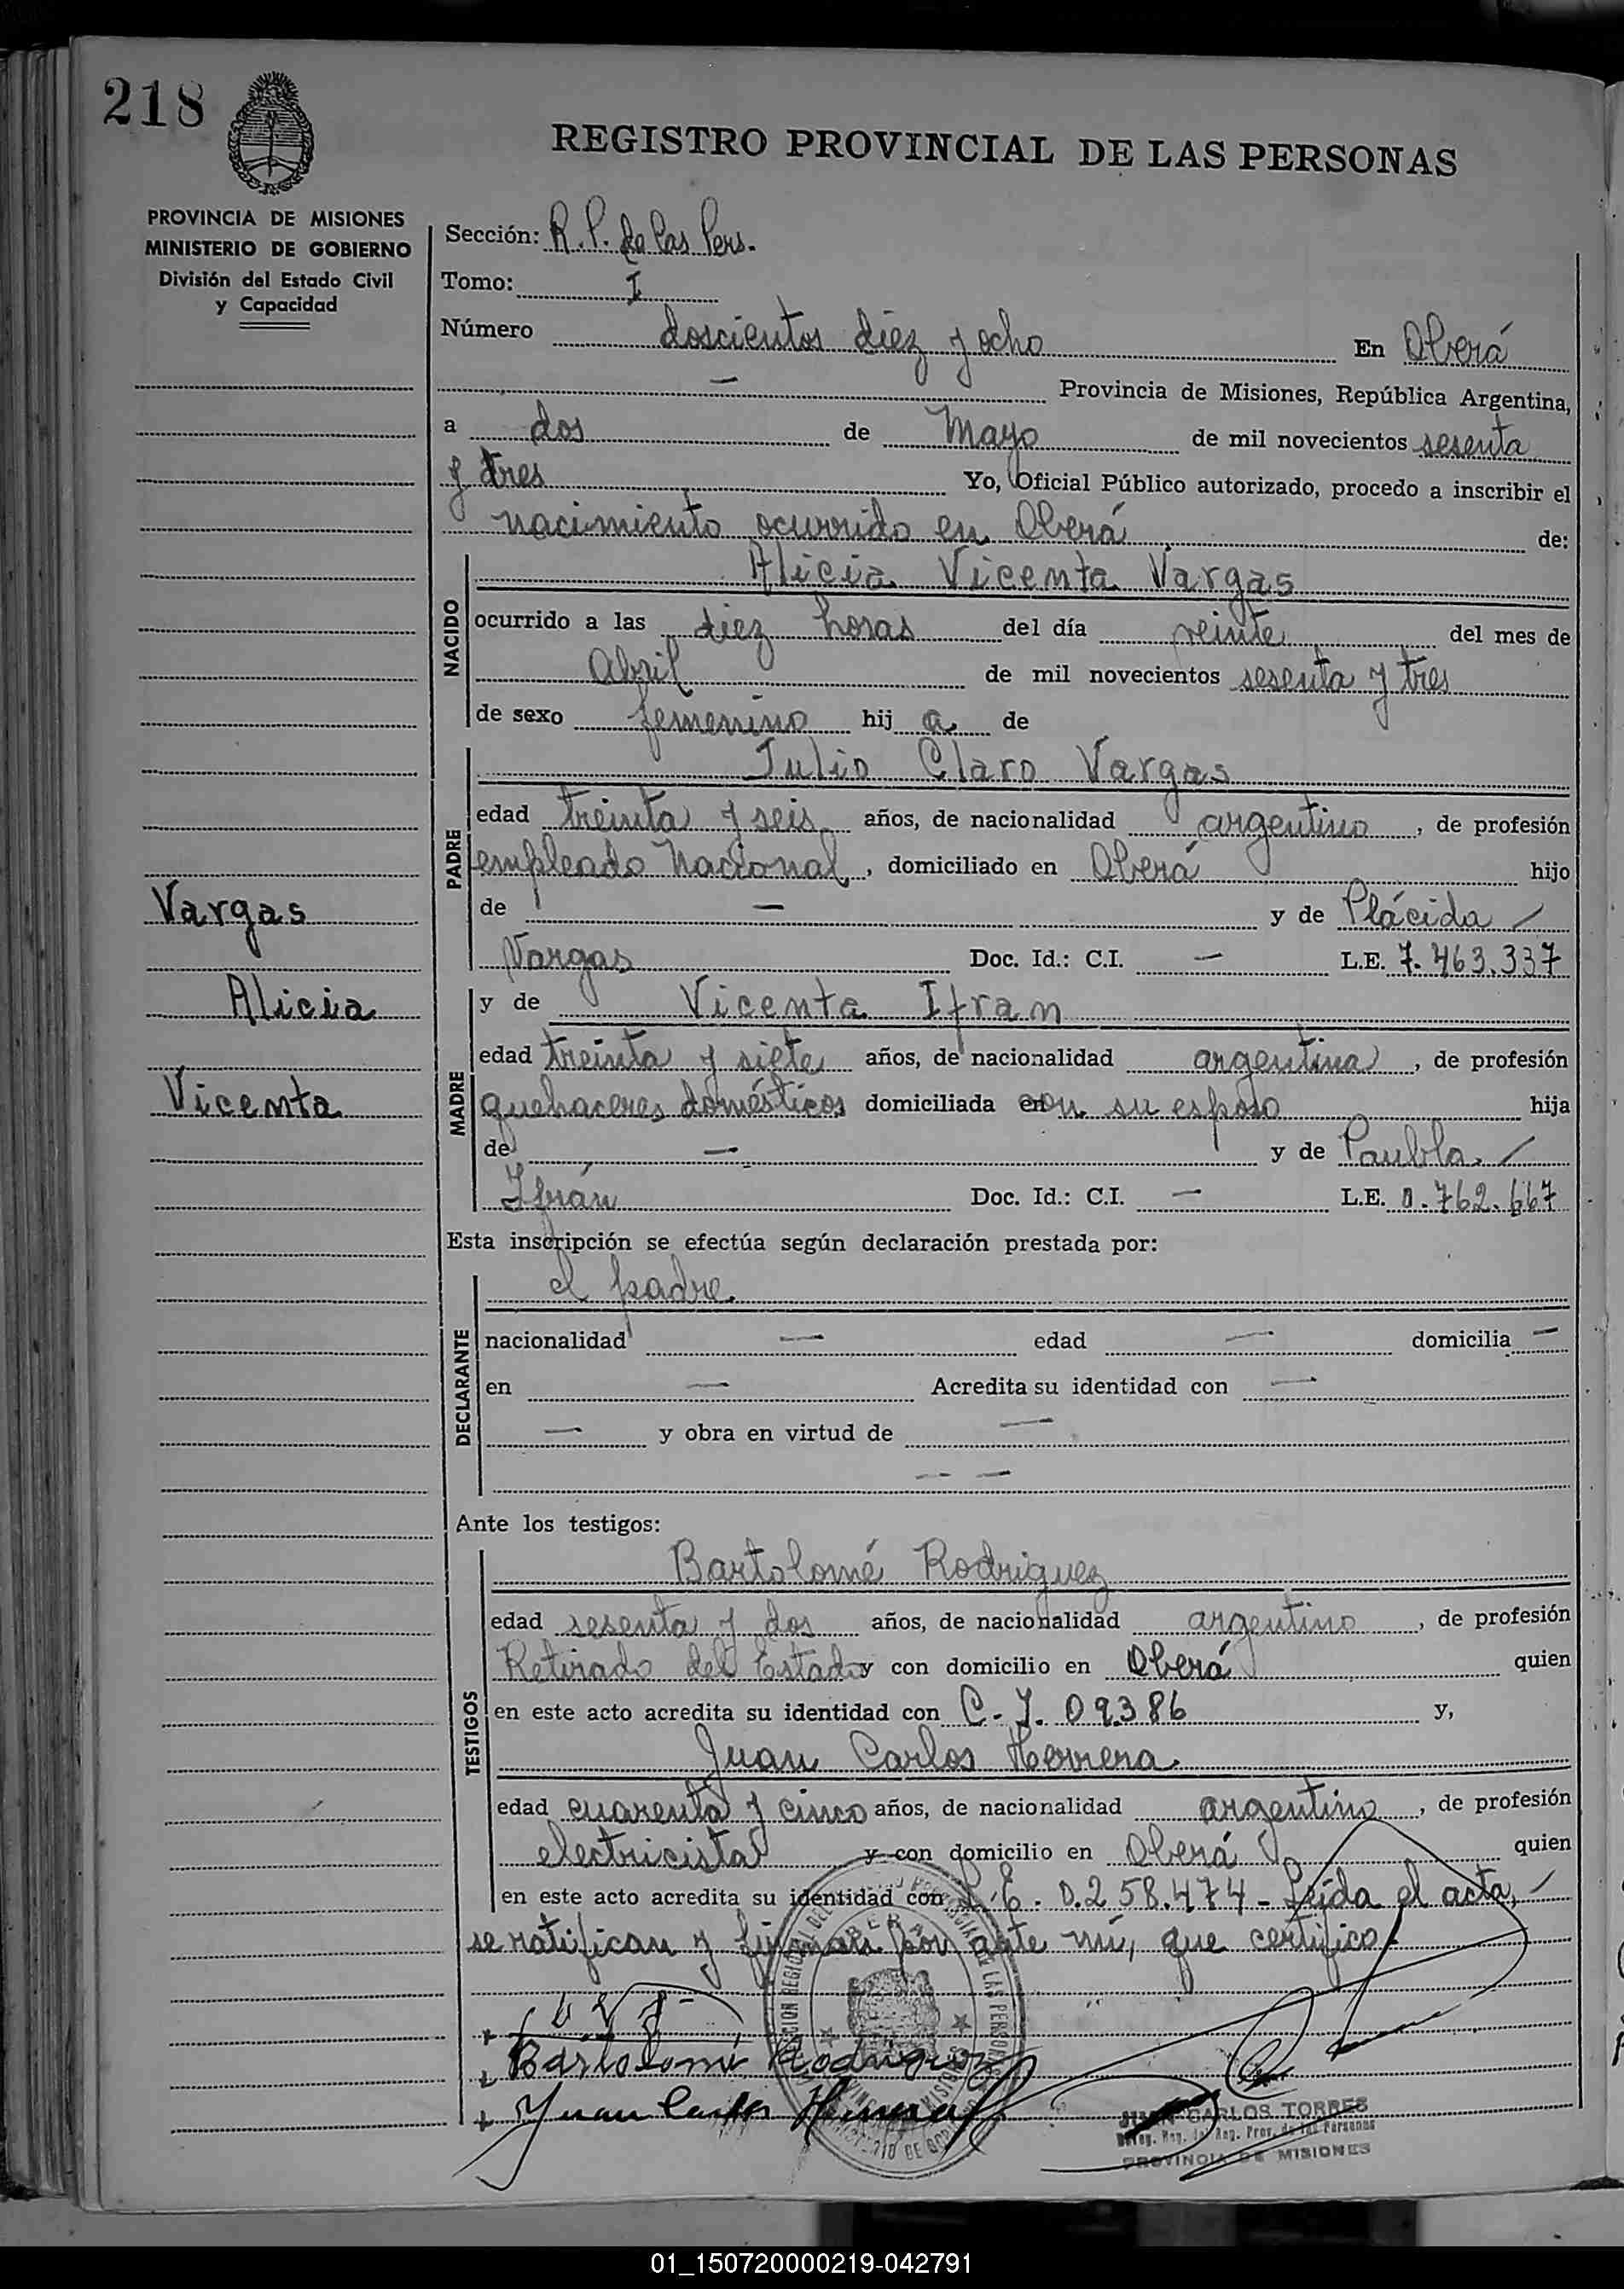 218
REGISTRO PROVINCIAL DE LAS PERSONAS
PROVINCIA DE MISIONES
MINISTERIO DE GOBIERNO
División del Estado Civil
y Capacidad
Vargas
Alicia
Vicenta
Sección: R. P. de las Pers.
Tomo: I
Número doscientos diez y ocho En Oberá
— Provincia de Misiones, República Argentina,
a dos de Mayo de mil novecientos sesenta
y tres Yo, Oficial Público autorizado, procedo a inscribir el
nacimiento ocurrido en Oberá de:
NACIDO
Alicia Vicenta Vargas
ocurrido a las diez horas del día veinte del mes de
Abril de mil novecientos sesenta y tres
de sexo femenino hij a de
PADRE
Julio Claro Vargas
edad treinta y seis años, de nacionalidad argentino, de profesión
empleado Nacional, domiciliado en Oberá hijo
de — y de Plácida /
Vargas Doc. Id.: C.I. — L.E. 7.463.337
MADRE
y de Vicenta Ifran
edad treinta y siete años, de nacionalidad argentina, de profesión
quehaceres domésticos domiciliada en con su esposo hija
de — y de Paubla. /
Ifrán Doc. Id.: C.I. — L.E. 0.762.667
Esta inscripción se efectúa según declaración prestada por:
DECLARANTE
el padre.
nacionalidad — edad — domicilia —
en — Acredita su identidad con —
— y obra en virtud de —
— —
Ante los testigos:
TESTIGOS
Bartolomé Rodriguez
edad sesenta y dos años, de nacionalidad argentino, de profesión
Retirado del Estado y con domicilio en Oberá quien
en este acto acredita su identidad con C. I. 09386 y,
Juan Carlos Herrera.
edad cuarenta y cinco años, de nacionalidad argentino, de profesión
electricista y con domicilio en Oberá quien
en este acto acredita su identidad con L.E. 0.258.474 - Leída el acta, /
se ratifican y firman por ante mí, que certifico.
Bartolomé Rodriguez
Juan Carlos Herrera
JUAN CARLOS TORRES
Deleg. Reg. del Reg. Prov. de las Personas
PROVINCIA DE MISIONES
01_150720000219-042791